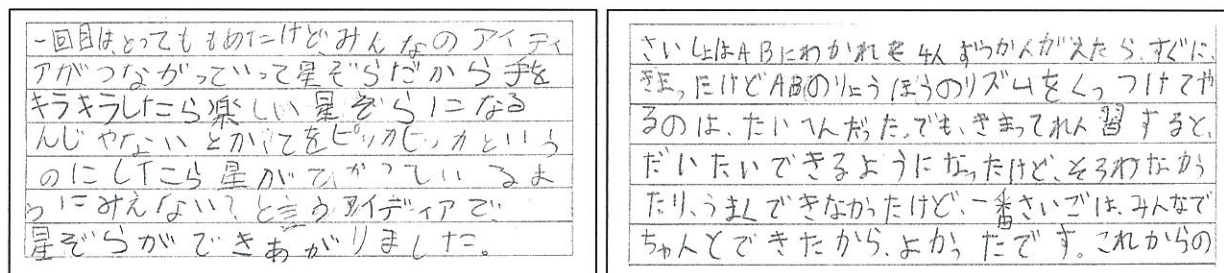 一回目は、とってももめたけど、みんなのアイディ
アがつながっていって星ぞらだから手を
キラキラしたら楽しい星ぞらになる
んじゃないとか、てをピッカピッカという
のにしたら星がひかっているよ
うにみえない?と言うアイディアで、
星ぞらができあがりました。
さいしょはABにわかれて4人ずつかんがえたら、すぐに、
きまったけどABのりょうほうのリズムをくっつけてや
るのは、たいへんだった。でも、きまってれん習すると、
だいたいできるようになったけど、そろわなかっ
たり、うまくできなかったけど、一番さいごは、みんなで
ちゃんとできたから、よかったです。これからの